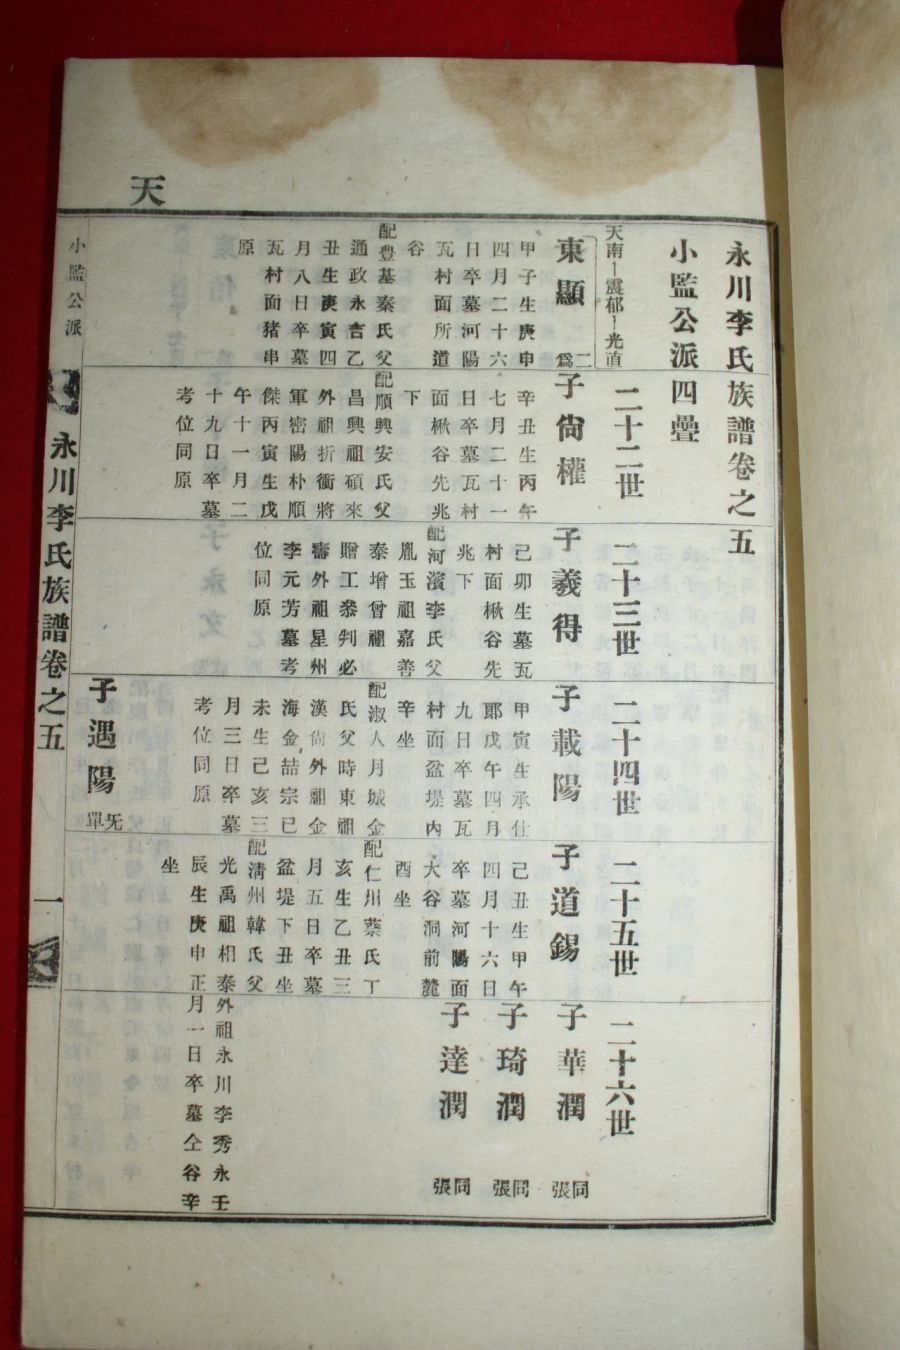 天
永川李氏族譜卷之五
小監公派四疊
天南ー震郁ー光直
東顯
二爲
甲子生庚申
四月二十六
日卒墓河陽
瓦村面所道
谷
配豊基秦氏父
通政永吉乙
丑生庚寅四
月八日卒墓
瓦村面猪串
原
二十二世
子尙權
辛丑生丙午
七月二十一
日卒墓瓦村
面楸谷先兆
下
配順興安氏父
昌興祖碩來
外祖折衝將
軍密陽朴順
傑丙寅生戊
午十一月二
十九日卒墓
考位同原
二十三世
子義得
己卯生墓瓦
村面楸谷先
兆下
配河濱李氏父
胤玉祖嘉善
泰增曾祖
贈工叅判必
審外祖星州
李元芳墓考
位同原
二十四世
子載陽
甲寅生承仕
郞戊午四月
九日卒墓瓦
村面盆堤內
辛坐
配淑人月城金
氏父時東祖
漢尙外祖金
海金喆宗已
未生己亥三
月三日卒墓
考位同原
子遇陽
旡單
二十五世
子道錫
己丑生甲午
四月十六日
卒墓河陽面
大谷洞前麓
酉坐
配仁川蔡氏丁
亥生乙丑三
月五日卒墓
盆堤下丑坐
配淸州韓氏父
光禹祖相泰
辰生庚申正
坐
二十六世
子華潤
同張
子琦潤
同張
子達潤
同張
外祖永川李秀永壬
月一日卒墓仝谷辛
小監公派
永川李氏族譜卷之五
一